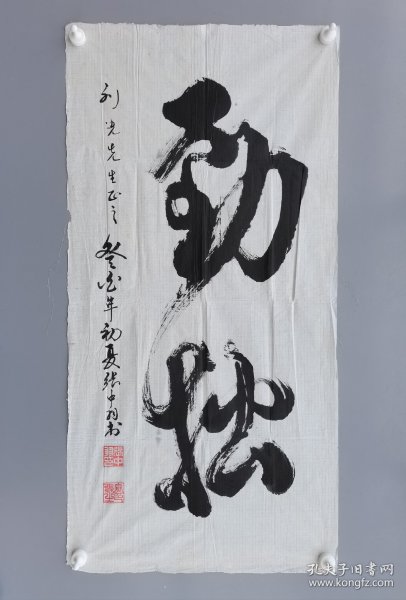 劲松
刘光先生正之
癸酉年初夏张中羽书
孔夫子旧书网
www.kongfz.com